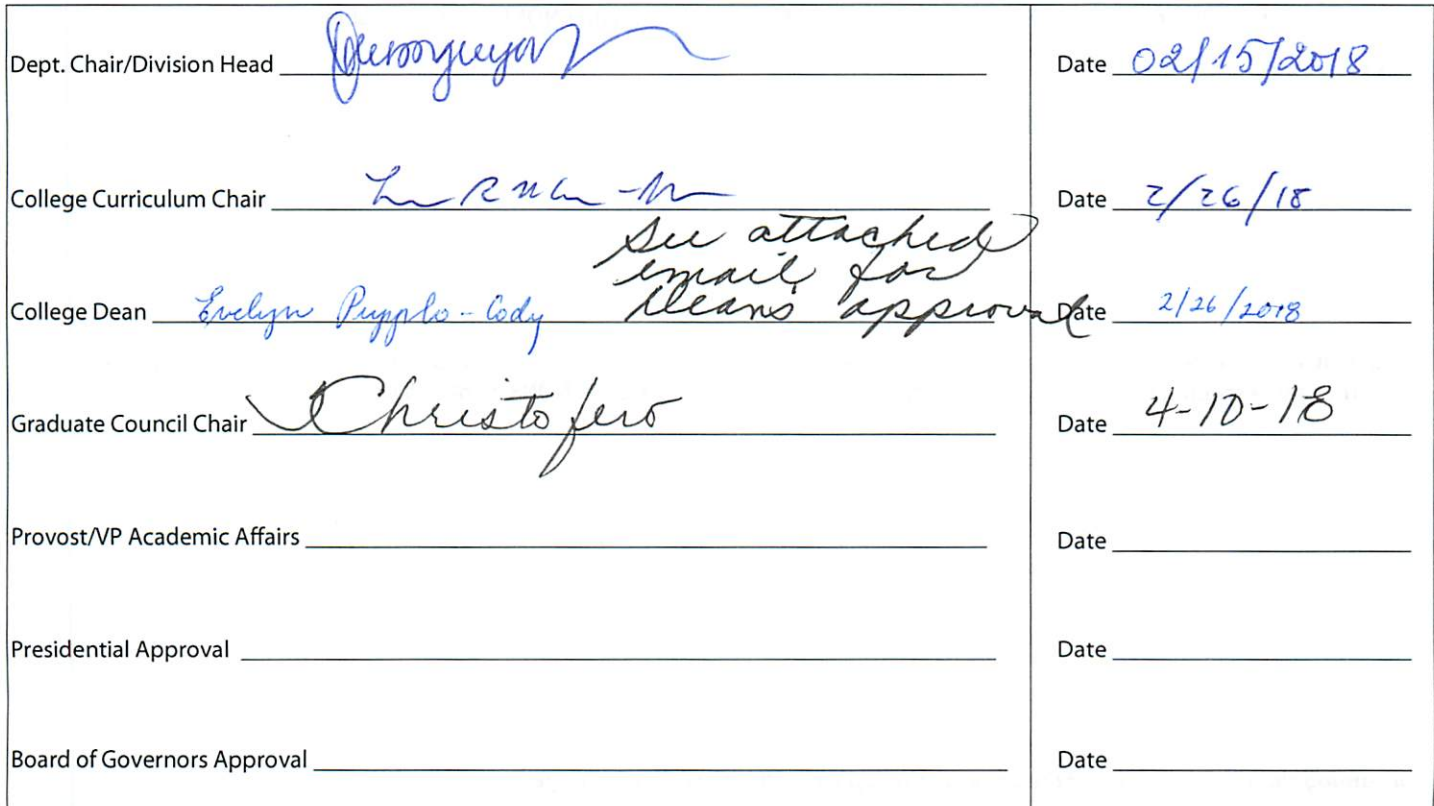 Dept. Chair/Division Head Date 02/15/2018
College Curriculum Chair Date 2/26/18
See attached
email for
College Dean Evelyn Pupplo-Cody Deans approval Date 2/26/2018
Graduate Council Chair Christofero Date 4-10-18
Provost/VP Academic Affairs Date
Presidential Approval Date
Board of Governors Approval Date